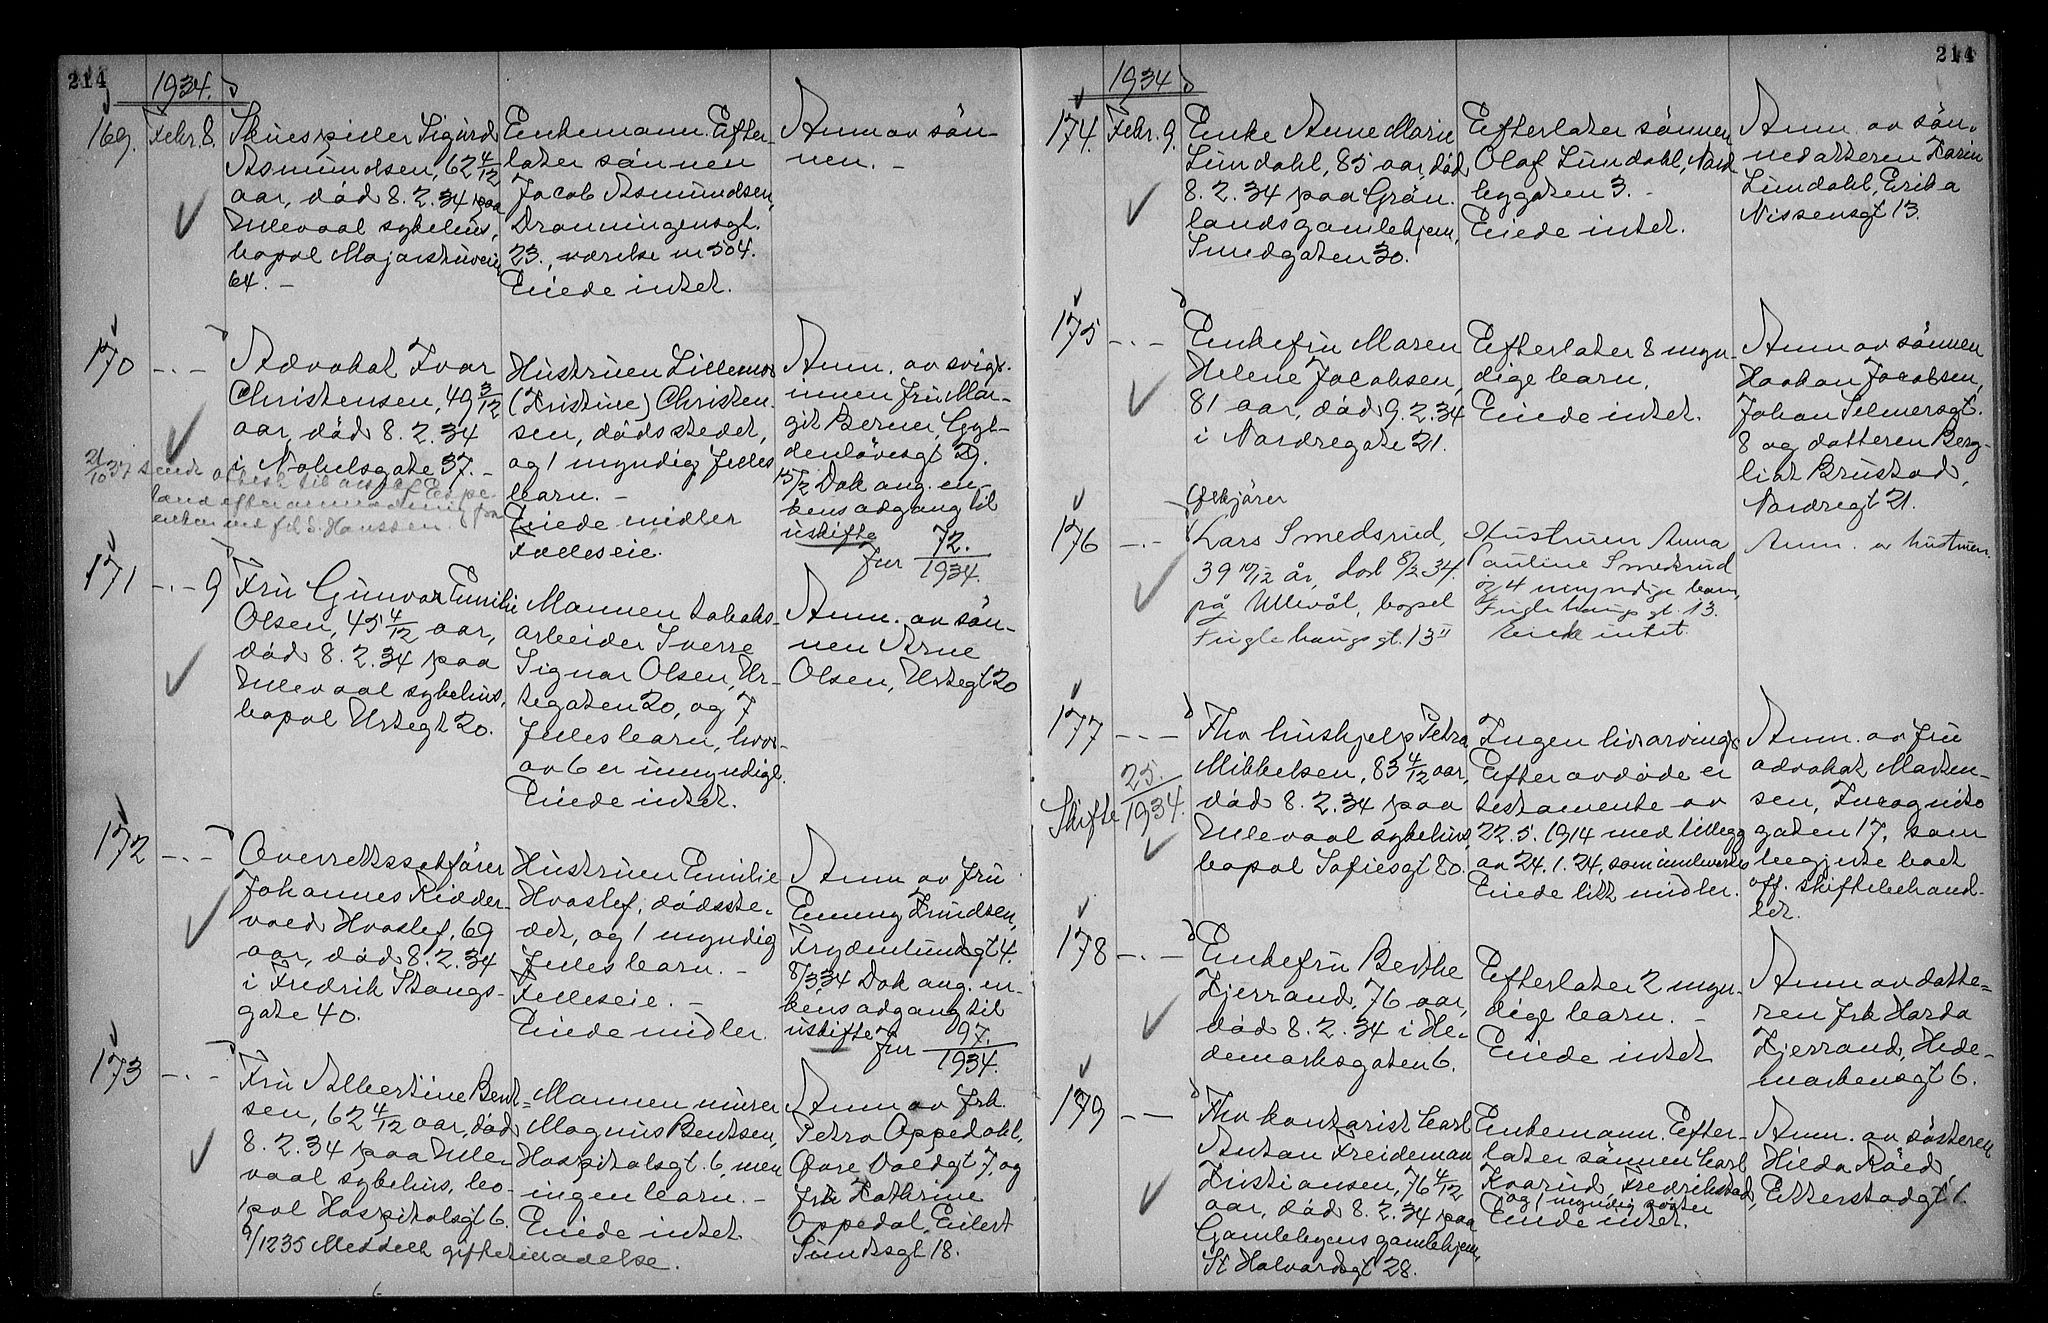 214
1934.
169.
Febr. 8.
Skuespiller Sigurd
Asmundsen, 62 4/12
aar, död 8.2.34 paa
Ullevaal sykehus,
bopæl Majorstuveien
64. -
Enkemann. Efter-
later sönnen
Jacob Asmundsen,
Dronningensgt.
23., værelse nr 504.
Eiede intet.
Anm. av sön-
nen. -
170
- . -
Advokat Ivar
Christensen, 49 3/12
aar, död 8.2.34
i Nobelsgate 37. -
21/10 37 sendt attest til
land efter anmodning fra
enken ved S. Hanssen.
Hustruen Lillemor
(Kristine) Christen-
sen, dödsstedet,
og 1 myndig fælles
barn. -
Eiede midler
Fælleseie.
Anm. av svigr.
innen fru Mar-
git Berner, Gyl-
denlövesgt 29.
15/2 Dok ang. en-
kens adgang til
uskifte
Jnr 72./1934.
171
- . - 9
Fru Gunvor Emilie
Olsen, 45 4/12 aar,
död 8.2.34 paa
Ullevaal sykehus,
bopæl Urtegt 20.
Mannen tobaks-
arbeider Sverre
Signar Olsen, Ur-
tegaten 20, og 7
fælles barn, hvor-
av 6 er umyndige.
Eiede intet.
Anm. av sön-
nen Arne
Olsen, Urtegt 20
172
- . -
Overrettssakförer
Johannes Ridder-
vold Hvoslef, 69
aar, död 8.2.34
i Fredrik Stangs-
gate 40.
Hustruen Emilie
Hvoslef, dödsste-
det, og 1 myndig
fælles barn. -
Felleseie. -
Eiede midler.
Anm av fru
Emmy Knudsen,
Frydenlundgt 4.
8/3 34 Dok ang. en-
kens adgang til
uskifte Jnr 97./1934.
173
- . -
Fru Albertine Bent-
sen, 62 4/12 aar, död
8.2.34 paa Ulle-
vaal sykehus, bo-
pæl Hospitalsgt 6.
/12 35 Meddelt giftetilladelse.
Mannen murer
Magnus Bentsen,
Hospitalsgt. 6, men
ingen barn. -
Eiede intet
Anm av frk.
Petra Oppedahl,
Övre Voldgt 7, og
frk Kathrine
Oppedal, Eilert
Sundtsgt 18.
214
1934
174.
Febr. 9.
Enke Anne Marie
Lundahl, 85 aar, död
8.2.34 paa Grön-
landsgamlehjem,
Smedgaten 30.
Efterlater sönnen
Olaf Lundahl, Nord-
bygaten 3. -
Eiede intet.
Anm. av sön-
nedatteren Karin
Lundahl, Erika
Nissensgt 13.
175
- . -
Enkefru Maren
Helene Jacobsen,
81 aar, död 9.2.34
i Nordregate 21.
Efterlater 8 myn-
dige barn.
Eiede intet.
Anm av sönnen
Haakon Jacobsen,
Johan Selmersgt.
8 og datteren Berg-
liot Brustad,
Nordregt 21.
176
- . -
Opkjører
Lars Smedsrud,
39 10/12 år, død 8/2 34.
på Ullevål, bopel
Fuglehaugs gt. 13 II
Hustruen Anna
Pauline Smedsrud
og 4 umyndige barn,
Fuglehaugs gt. 13.
Eiede intet.
Anm. av hustruen.
177
- . -
Skifte 25./1934.
Fhv hushjelp Petra
Mikkelsen, 83 4/12 aar,
död 8.2.34 paa
Ullevaal sykehus,
bopæl Sofiesgt 80.
Ingen livsarving.
Efter avdöde er
testamente av
22.5.1914 med tillegg
av 24.1.24, som innleveres
Eiede litt midler.
Anm. av fru
advokat Marten-
sen, Incognito
gaten 17, som
begjerte boet
off. skiftebehand-
let.
178
- . -
Enkefru Berthe
Kjerrand, 76 aar,
död 8.2.34 i He-
demarksgaten 6.
Efterlater 2 myn-
dige barn. -
Eiede intet
Anm av datte-
ren frk Harda
Kjerrand, Hede-
markensgt 6.
179
- . -
Fhv kontorist Carl
Anton Freideman
Kristiansen, 76 4/12
aar, död 8.2.34 paa
Gamlebyens gamlehjem,
St Halvardsgt 28.
Enkemann. Efter-
later sönnen Carl
Kvarud, Fredrikstad,
og 1 myndig datter
Eiede intet.
Anm. av sösteren
Hilda Röed,
Etterstadgt 1.